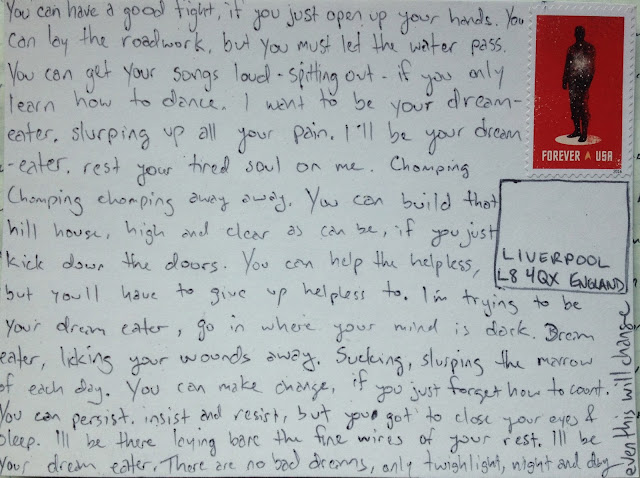 You can have a good fight, if you just open up your hands. You
can lay the roadwork, but you must let the water pass.
You can get your songs loud - spitting out - if you only
learn how to dance. I want to be your dream-
eater. slurping up all your pain. I'll be your dream
-eater. rest your tired soul on me. Chomping
Chomping chomping away away. You can build that
hill house, high and clear as can be, if you just
kick down the doors. You can help the helpless,
but you'll have to give up helpless to. I'm trying to be
your dream eater, go in where your mind is dark. Dream
eater, licking your wounds away. Sucking, slurping the marrow
of each day. You can make change, if you just forget how to count.
You can persist. insist and resist, but you got to close your eyes &
sleep. I'll be there laying bare the fine wires of your rest. I'll be
your dream eater. There are no bad dreams, only twighlight, night and day
even this will change
FOREVER USA
LIVERPOOL
L8 4QX ENGLAND